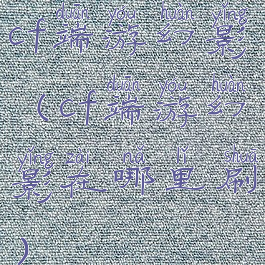 duān yóu huàn yǐng
cf端游幻影
duān yóu huàn
(cf端游幻
yǐng zài nǎ lǐ shuā
影在哪里刷
)